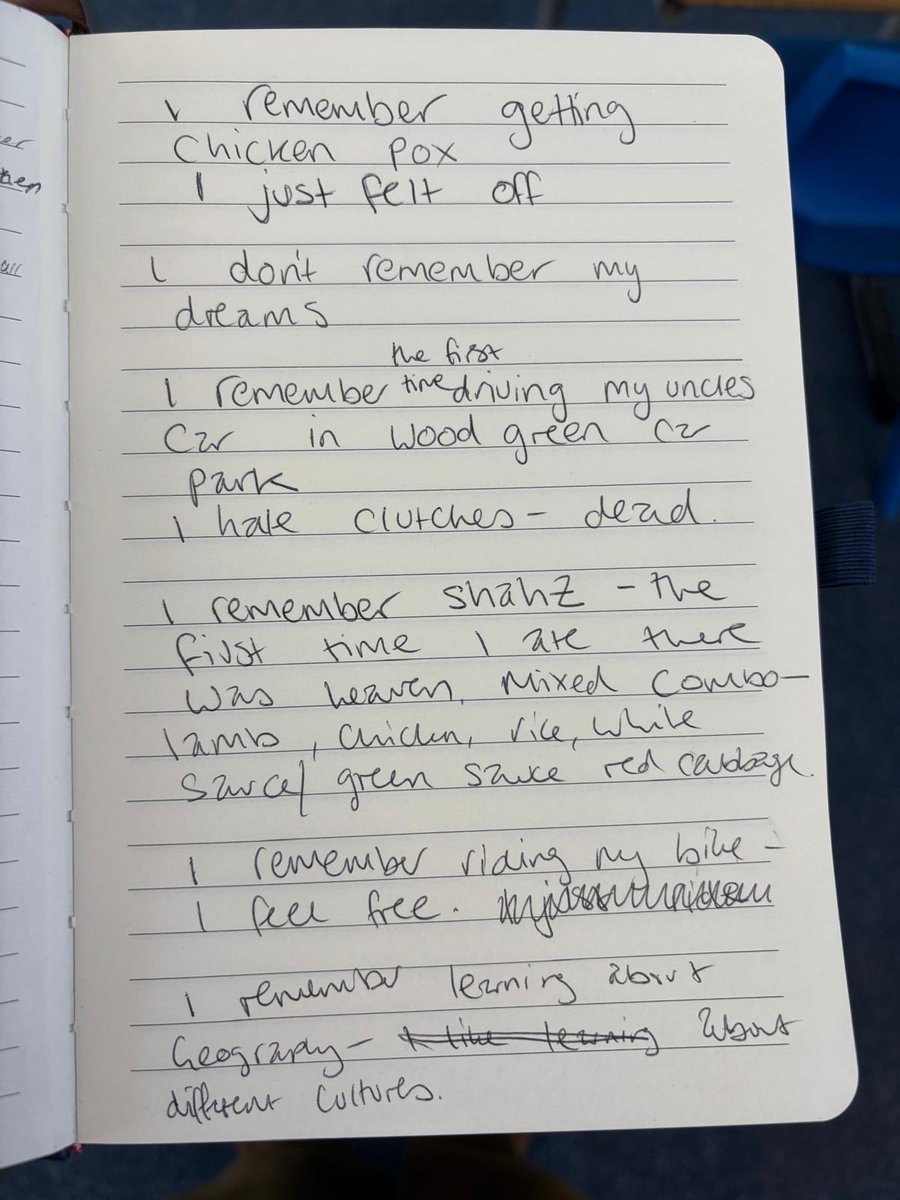 er
hen
all
I remember getting
chicken pox
I just felt off
I don't remember my
dreams
the first
I remember time driving my uncles
car in wood green car
park
I hate clutches - dead.
I remember shahz - the
first time I ate there
was heaven. Mixed combo -
lamb, chicken, rice, white
sauce/ green sauce red cabbage.
I remember riding my bike -
I feel free.
I remember learning about
Geography - I like learning about
different cultures.